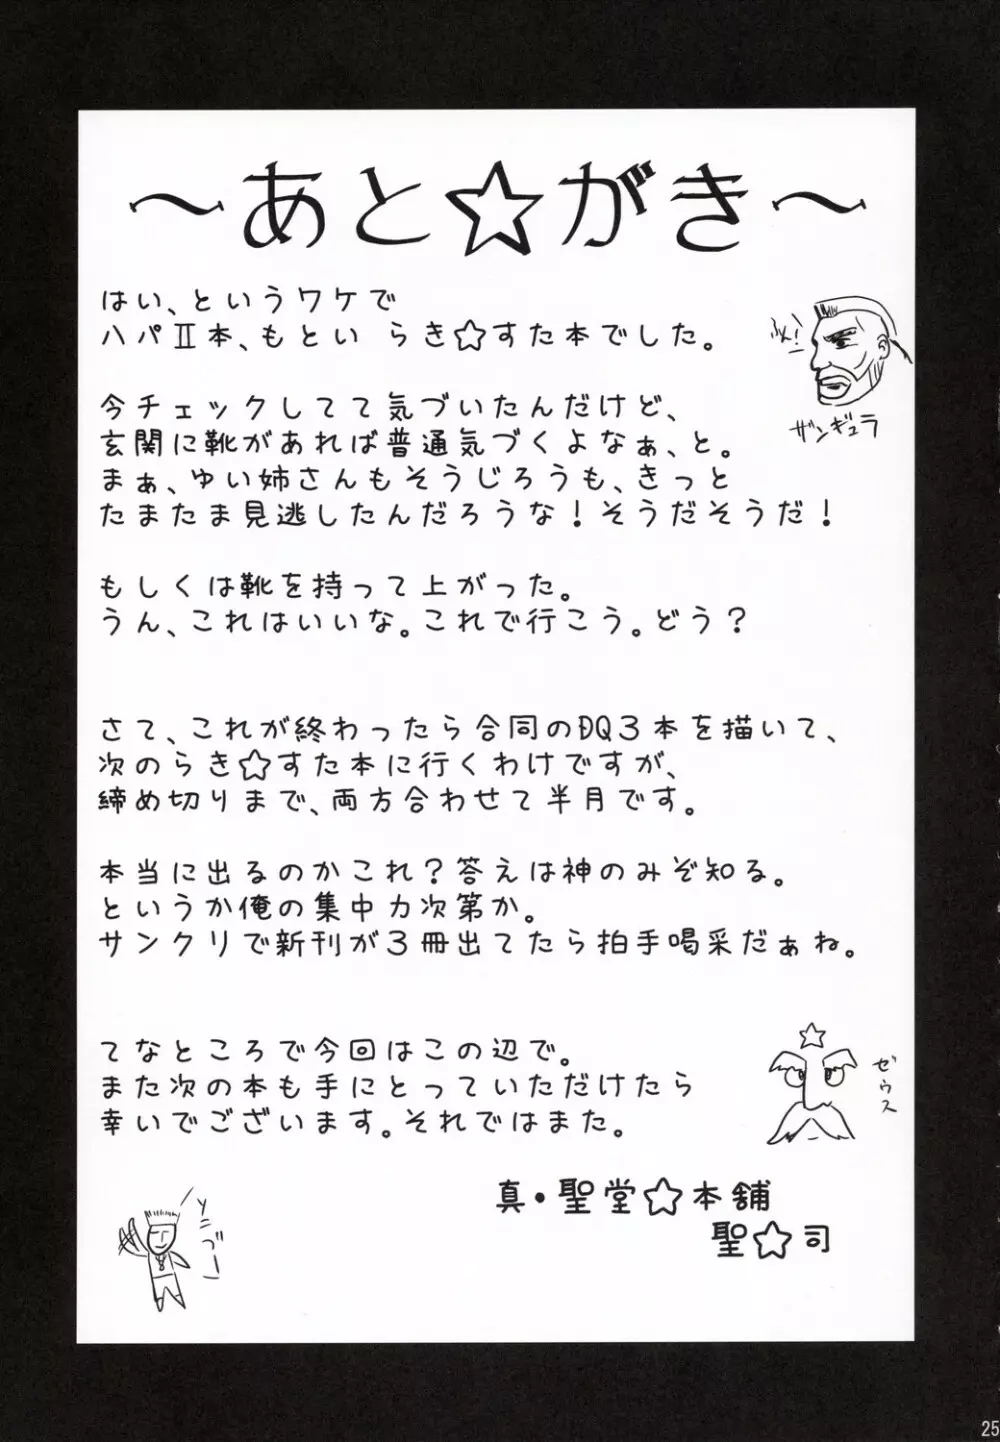 ～あと☆がき～
はい、というワケで
ハパⅡ本、もとい らき☆すた本でした。
ふん!
ザンギュラ
今チェックしてて気づいたんだけど、
玄関に靴があれば普通気づくよなぁ、と。
まぁ、ゆい姉さんもそうじろうも、きっと
たまたま見逃したんだろうな！そうだそうだ！
もしくは靴を持って上がった。
うん、これはいいな。これで行こう。どう？
さて、これが終わったら合同のDQ3本を描いて、
次のらき☆すた本に行くわけですが、
締め切りまで、両方合わせて半月です。
本当に出るのかこれ？答えは神のみぞ知る。
というか俺の集中力次第か。
サンクリで新刊が3冊出てたら拍手喝采だぁね。
てなところで今回はこの辺で。
また次の本も手にとっていただけたら
幸いでございます。それではまた。
ゼウス
真・聖堂☆本舗
聖☆司
ソニブー
25